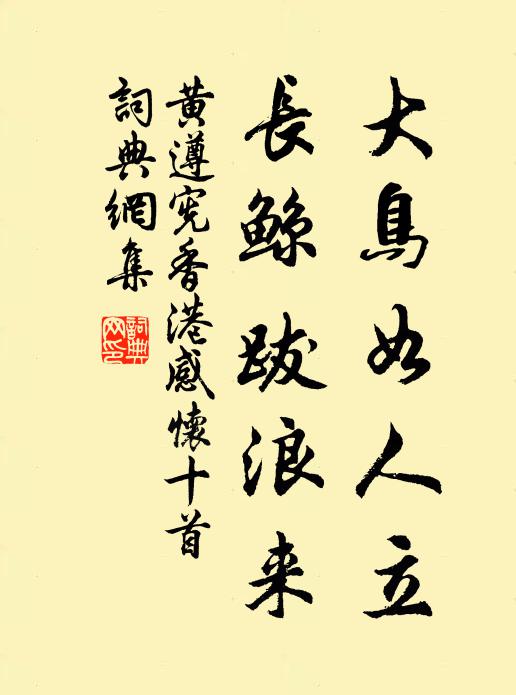 大鳥如人立
長鯨跋浪来
黄遵宪香港感懷十首
詞典網集
詞典網印